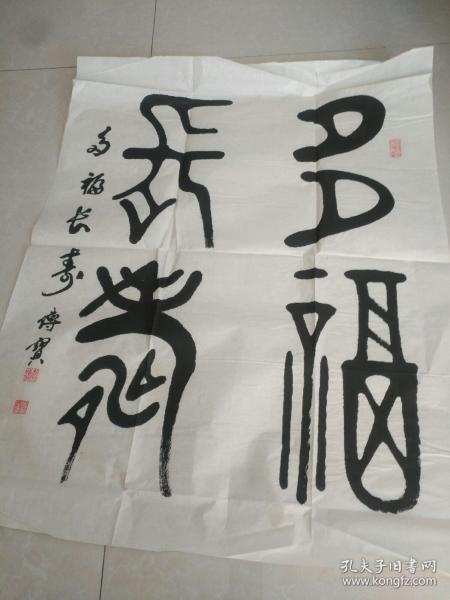 多福
长寿
多福长寿 传宝
孔夫子旧书网
www.kongfz.com